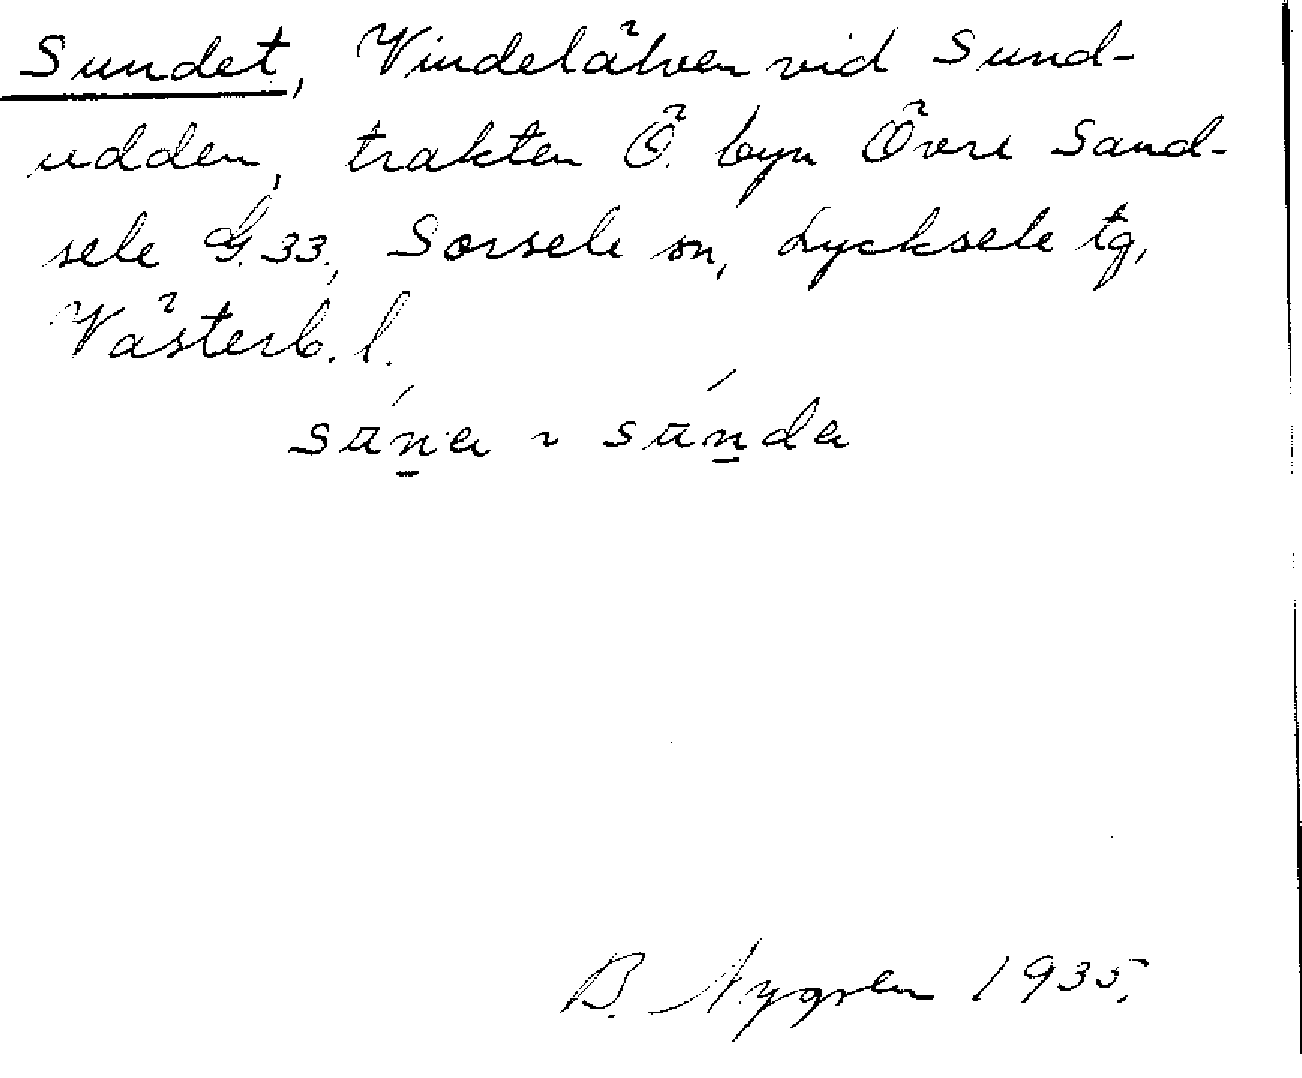 Sundet, Vindelälven vid Sund-
udden, trakten Ö. byn Övre Sand-
sele G. 33., Sorsele sn, Lycksele tg,
Västerb. l.
súṉa ~ súṉda
B. Nygren 1935.